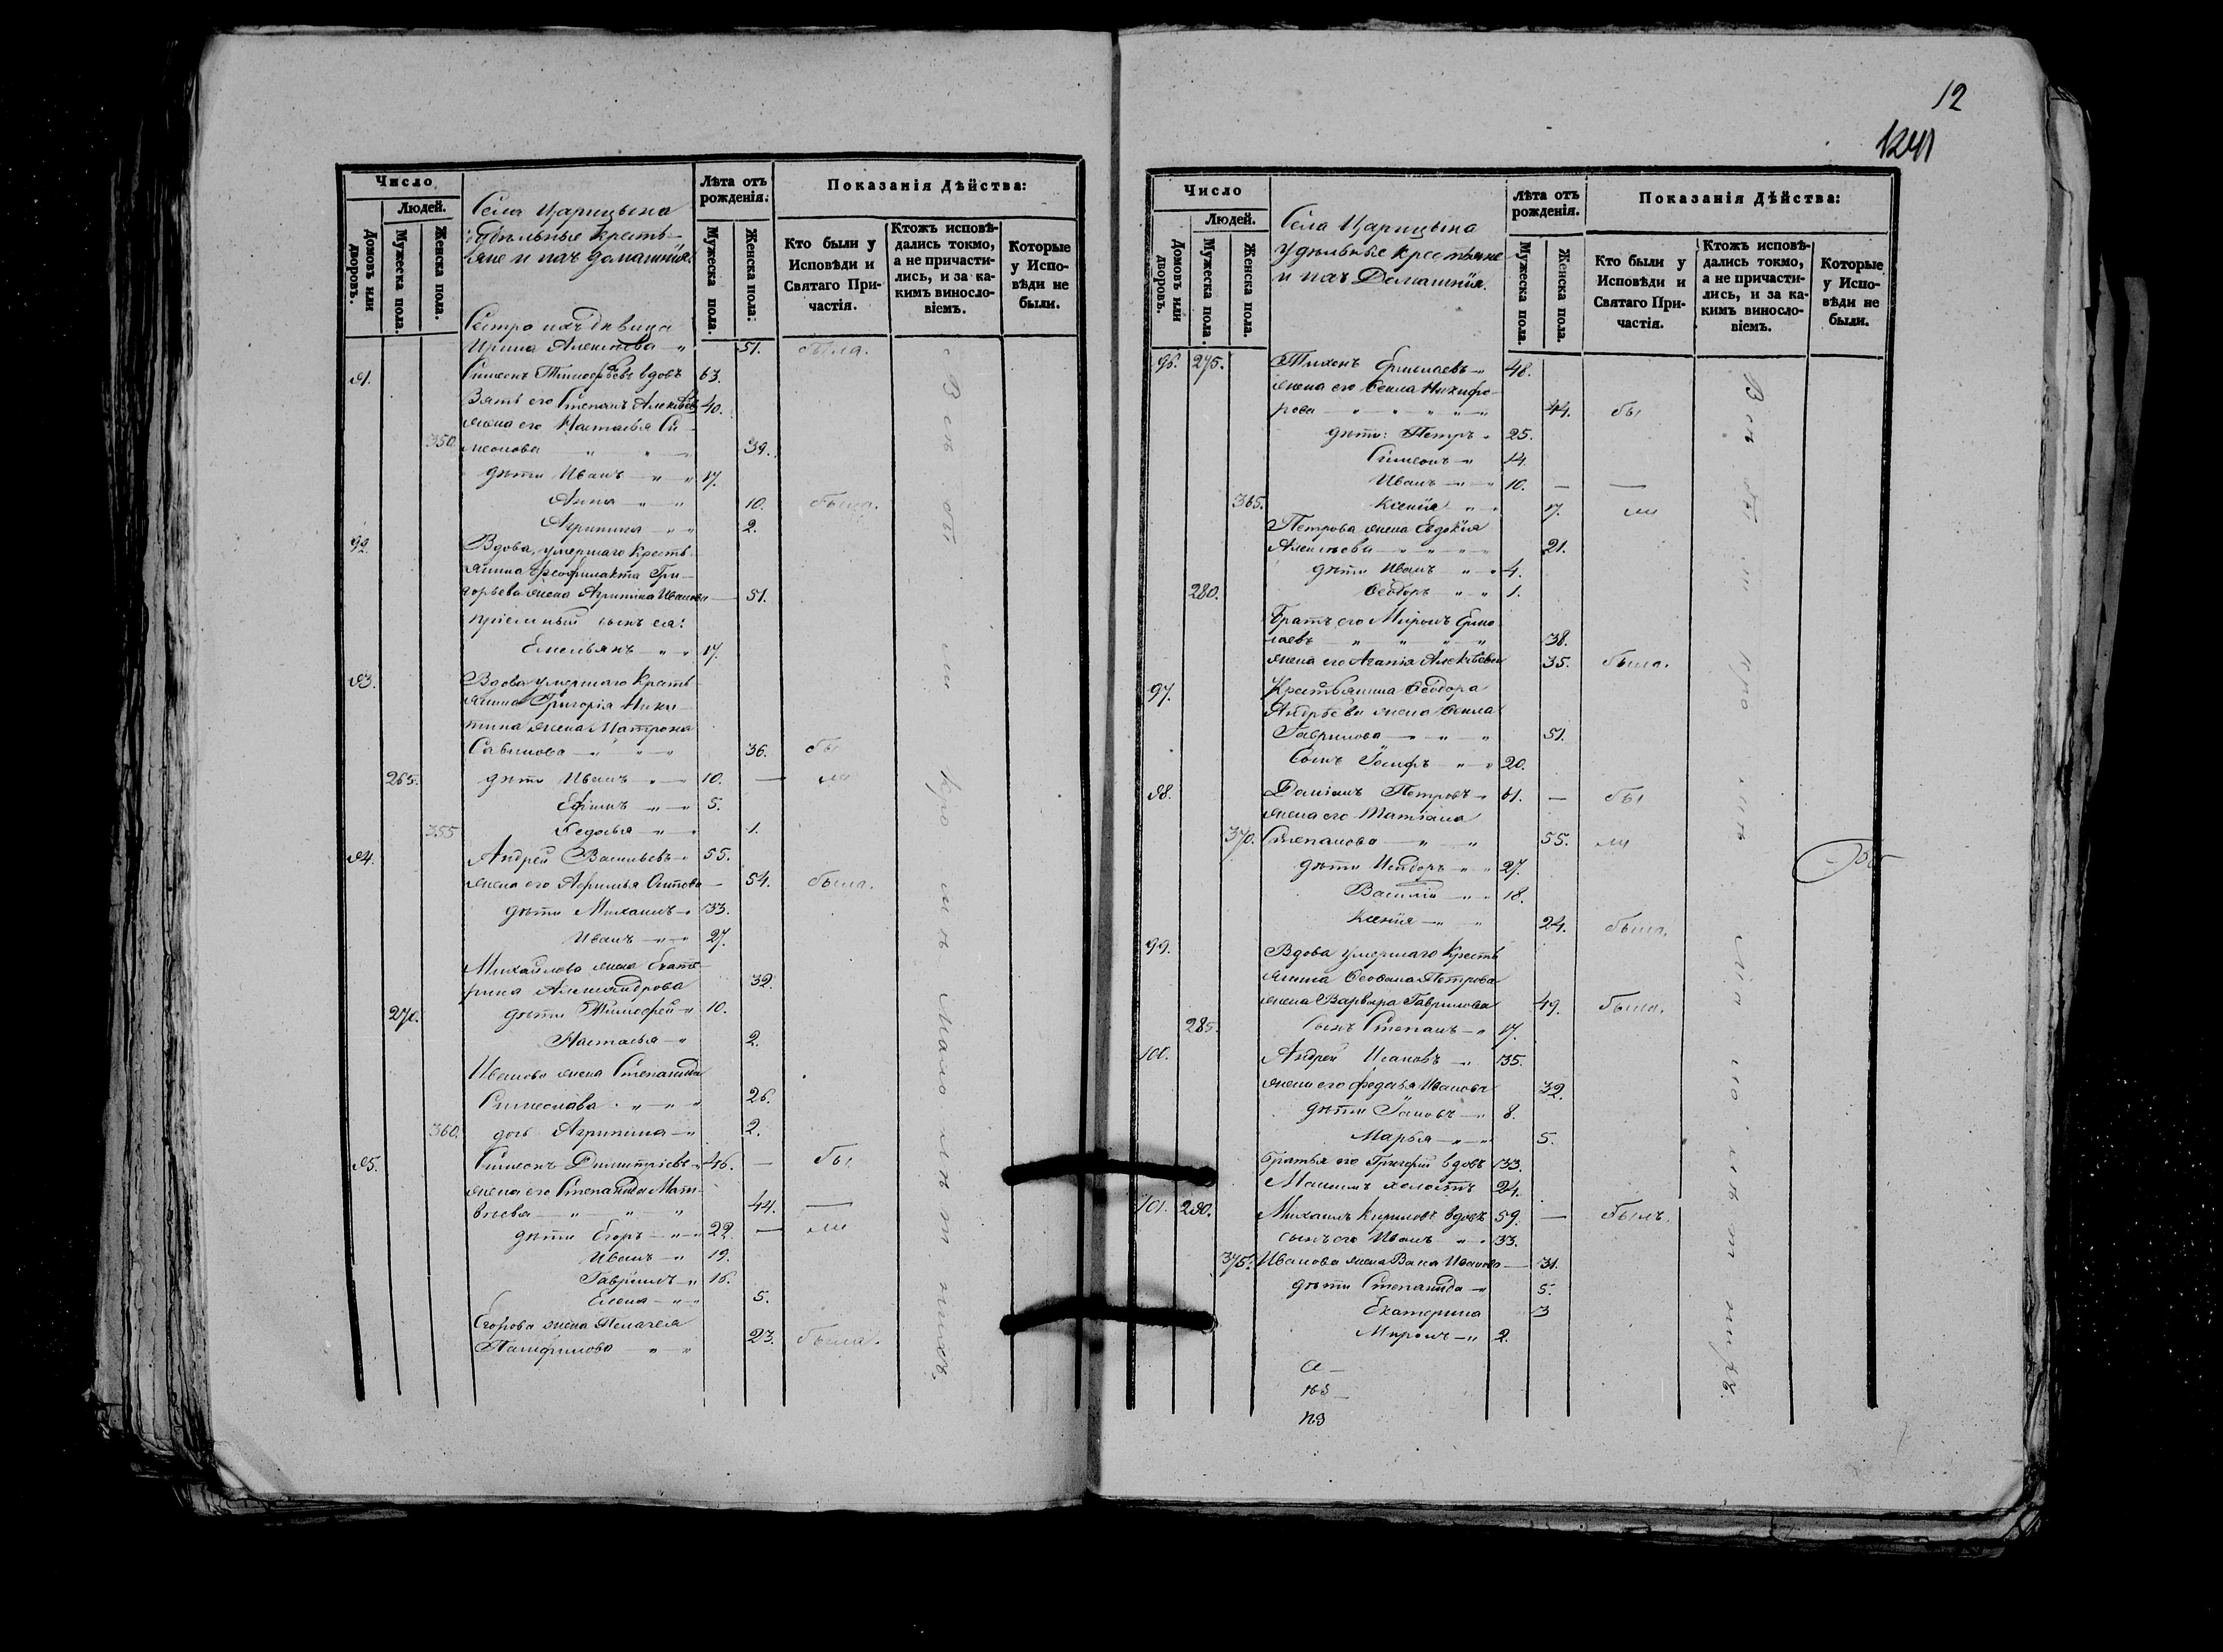 Число
Людей.
Домовъ или дворовъ.
Мужеска пола.
Женска пола.
Села Царицына
удѣльные кресть-
яне и ихъ домашнія.
Лѣта отъ рожденія:
Мужеска пола.
Женска пола:
Показанія Дѣйства:
Кто были у Исповѣди и Святаго При-частія.
Ктожъ исповѣ-дались токмо, а не причасти-лись, и за ка-кимъ виносло-віемъ.
Которые у Испо-вѣди не были.
Сестра ихъ дѣвица
Ирина Алексѣева 51. была.
91. Симеонъ Тимоѳѣевъ вдовъ 63.
Зять его Степанъ Алексѣевъ 40.
жена его Настасья Си-
350. меонова 39.
дѣти Иванъ 17.
Анна 10. была.
Агрипина 2.
92. Вдова, умершаго кресть-
янина Феофилакта Гри-
горьева жена Агрипина Иванова 51.
пріемный сынъ ея:
Емельянъ 17.
93. Вдова умершаго кресть-
янина Григорія Ники-
тина жена Матрона
Савинова 36. бы
265. дѣти Иванъ 10. — ли
Ефимъ 5.
355 Федосья 1.
94. Андрей Васильевъ 55.
жена его Афимья Осипова 54. была.
дѣти Михаилъ 33.
Иванъ 27.
Михайлова жена Екате-
рина Александрова 32.
270. дѣти Тимофей 10.
Настасья 2.
Иванова жена Степанида
26.
360. дочь Агрипина 2.
95. Симеонъ Димитріевъ 46. — бы
жена его Степанида Мат-
вѣева 44. —
дѣти Егоръ 22. — ли
Иванъ 19.
Гавріилъ 16.
Елена 5.
Егорова жена Пелагея
Панфилова 23. была.
Всѣ бы ли кро мѣ мало лѣт нихъ.
12
Число
Людей.
Домовъ или дворовъ.
Мужеска пола
Женска пола.
Села Царицына
удѣльные крестьяне
и ихъ Домашнія.
Лѣта отъ рожденія.
Мужеска пола.
Женска пола
Показанія Дѣйства:
Кто были у Исповѣди и Святаго При-частія.
Ктожъ исповѣ-дались токмо, а не причасти-лись, и за ка-кимъ виносло-віемъ.
Которые у Испо-вѣди не были.
96. 275. Тихонъ Ермилаевъ 48.
жена его Ѳекла Никифо-
рова 44. бы
дѣти: Петръ 25.
Симеонъ 14.
Иванъ 10. — —
365. Ксенія 17. ли
Петрова жена Евдокія
Алексѣева 21.
дѣти Иванъ 4.
280. Ѳеодоръ 1.
Братъ его Миронъ Ермо-
лаевъ 38.
жена его Агапія Алексѣева 35. была.
97. Крестьянина Ѳеодора
Андрѣева жена Ѳекла
Гаврилова 51.
Сынъ Іосифъ 20.
98. Даніилъ Петровъ 61. — бы
жена его Татіана
370. Степанова 55. ли
дѣти Исидоръ 27.
Василій 18.
Ксенія 24. была.
99. Вдова умершаго кресть
янина Ѳеофана Петрова
жена Варвара Гаврилова 49. была.
285. сынъ Степанъ 17.
100. Андрей Исаковъ 35.
жена его Федосья Иванова 32.
дѣти Іаковъ 8.
Марья 5.
братья его Григорій вдовъ 33.
Максимъ холостъ 24.
101. 290. Михаилъ Кириловъ вдовъ 59. — былъ.
сынъ его Иванъ 33.
375. Иванова жена Васа Иванова 31.
дѣти Степанида 5.
Екатерина 3
Миронъ 2.
Всѣ бы ли кро мѣ ма ло лѣт нихъ.